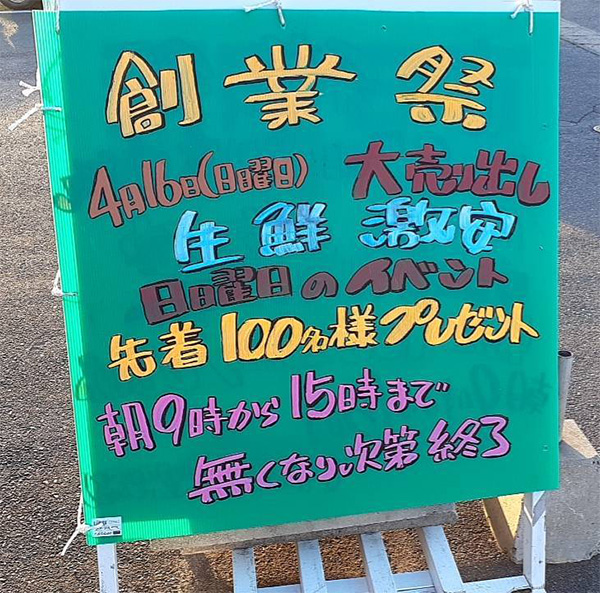 創業祭
4月16日(日曜日) 大売り出し
生鮮 激安
日曜日のイベント
先着100名様プレゼント
朝9時から15時まで
無くなり次第終了